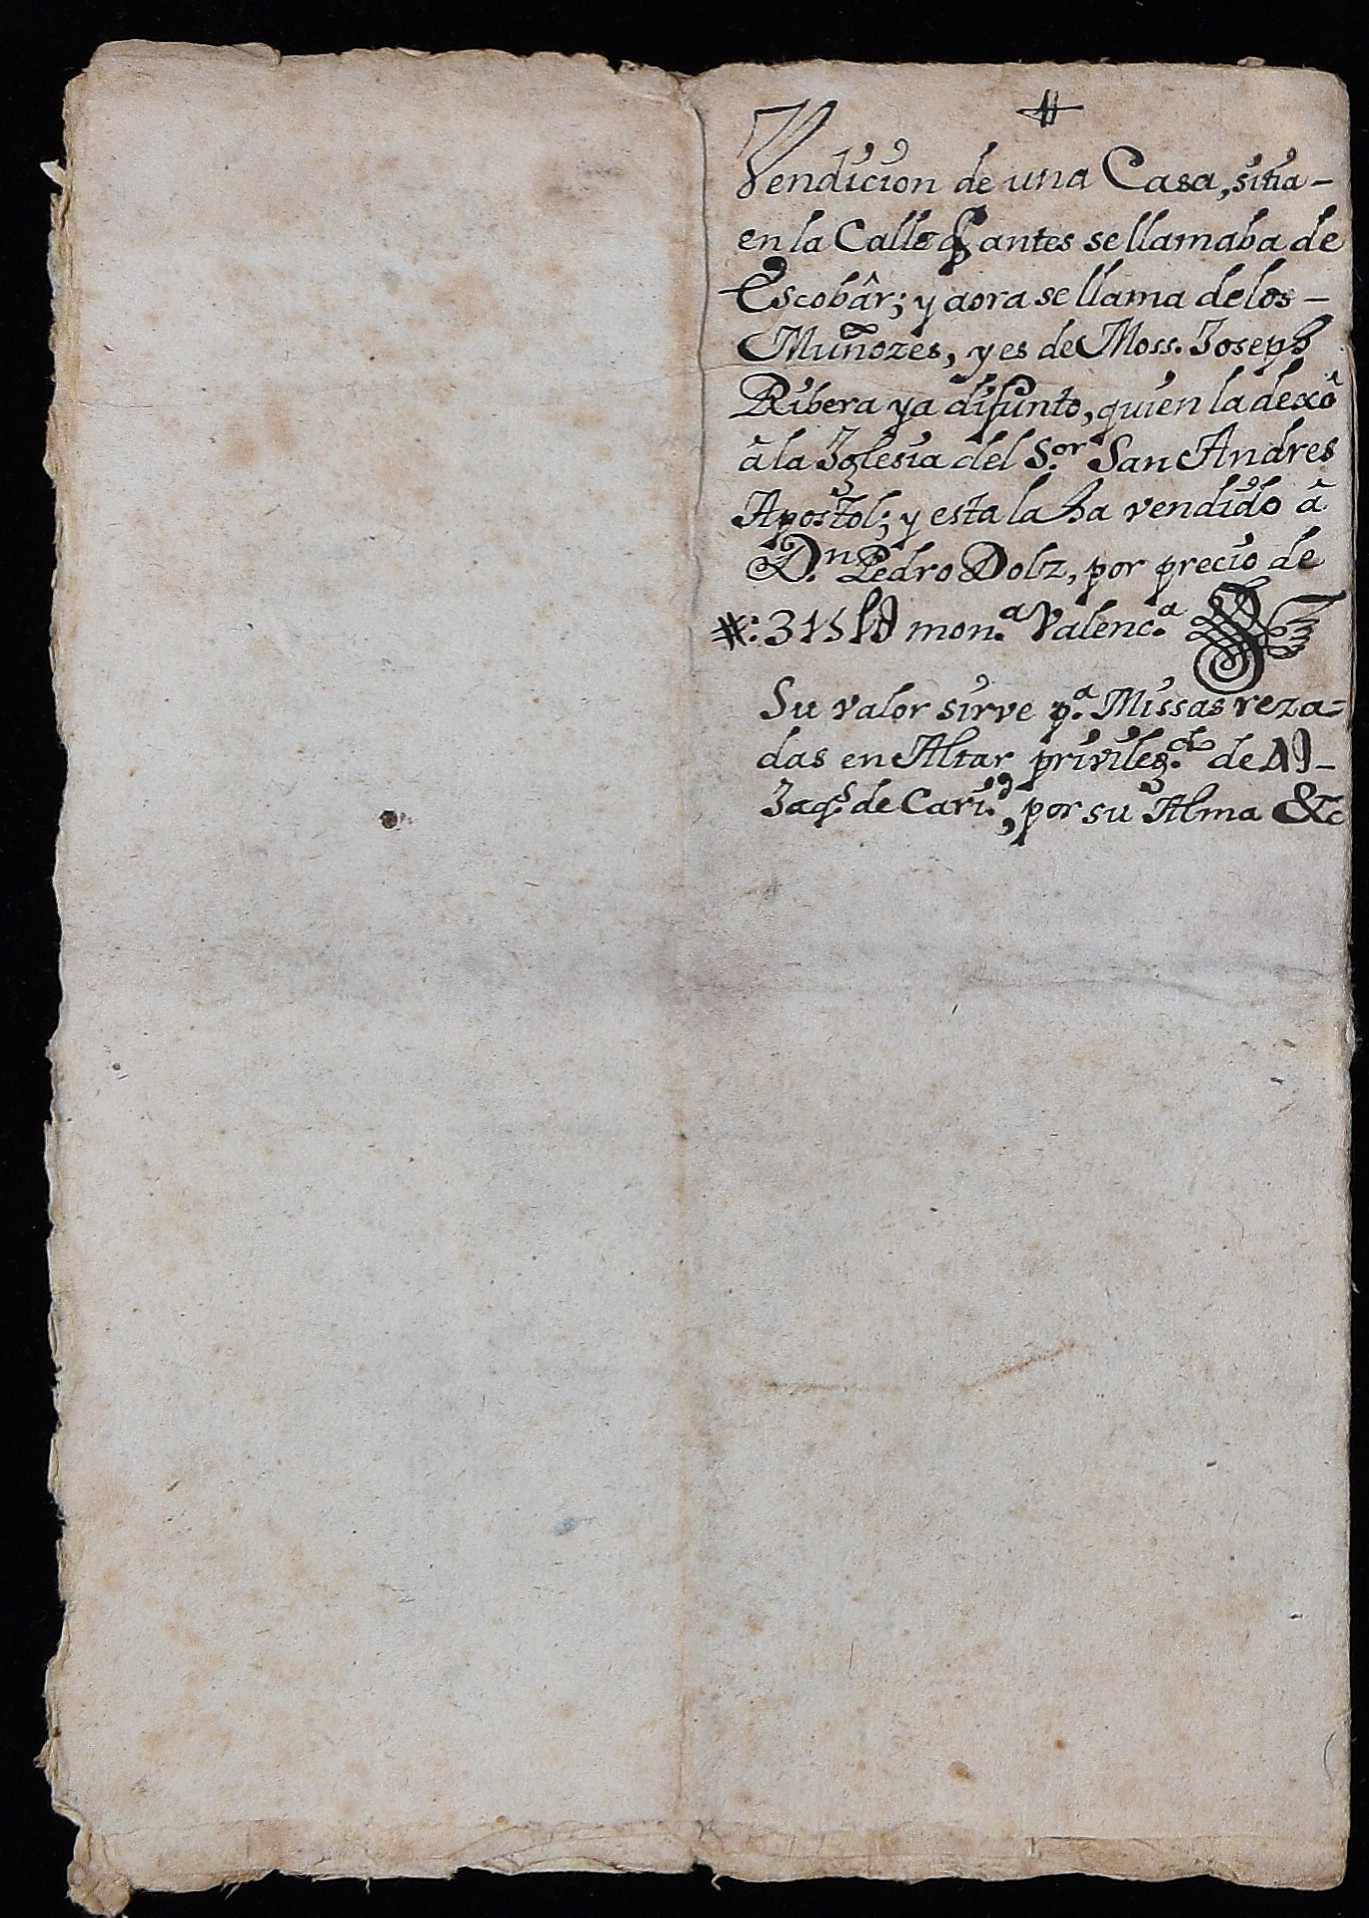 Vendicion de una Casa, sitia-
en la Calle q antes se llamaba de
Escobâr; y aora se llama de los-
Muñozes, y es de Moss. Joseph
Ribera ya difunto, quien la dexô
â la Iglesia del S.or San Andres
Apostol; y esta la ha vendido â
D.n Pedro Dolz, por precio de
#: 315 mon.a Valenc.a
Su valor sirve p.a Missas reza=
das en Altar de
Jaq.s de Cari.d, por su Alma &c